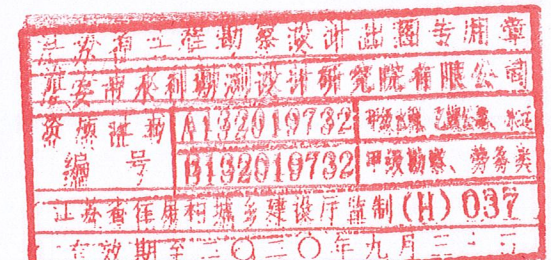 江苏省工程勘察设计出图专用章
淮安市水利勘测设计研究院有限公司
资质证书 A132019732
编号 B132019732 甲级勘察、劳务类
江苏省住房和城乡建设厅监制(H)037
有效期至二〇二〇年九月三十日